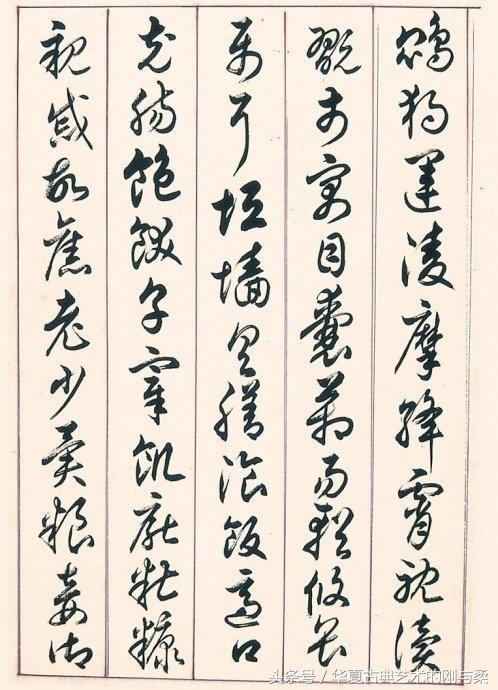 鵾獨運凌摩絳霄耽讀
翫市寓目囊箱易輶攸畏
屬耳垣墻具膳飡飯適口
充腸飽飫烹宰飢厭糟糠
親戚故舊老少異糧妾御
头条号／华夏古典艺术的刚与柔